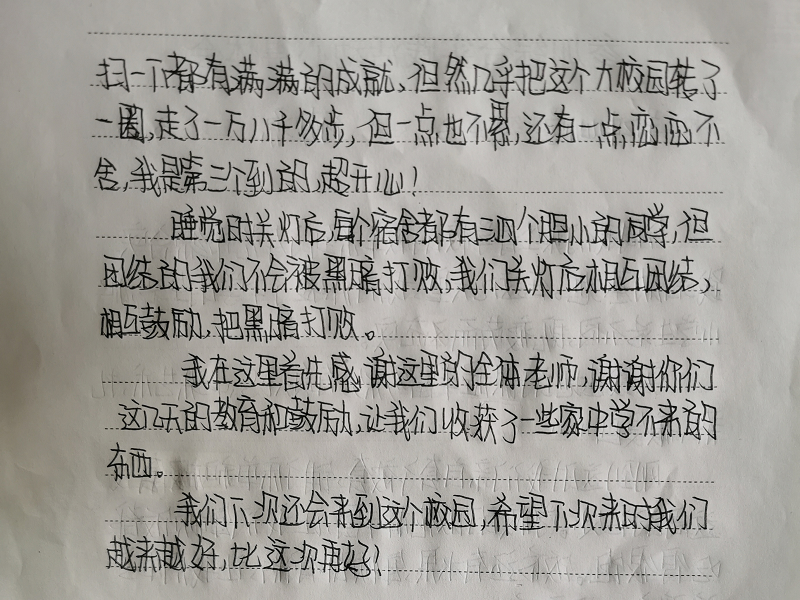 扫一下都有满满的成就、但然几乎把这个大校园转了
一圈,走了一万八千多步,但一点也不累,还有一点恋恋不
舍,我是第三个到的,超开心!
睡觉时关灯后,每个宿舍都有三四个胆小的同学,但
团结的我们不会被黑暗打败,我们关灯后相互团结、
相互鼓励,把黑暗打败。
我在这里首先感谢这里的全体老师,谢谢你们
这几天的教育和鼓励,让我们收获了一些家中学不来的
东西。
我们下次还会来到这个校园,希望下次来时我们
越来越好,比这次再好!